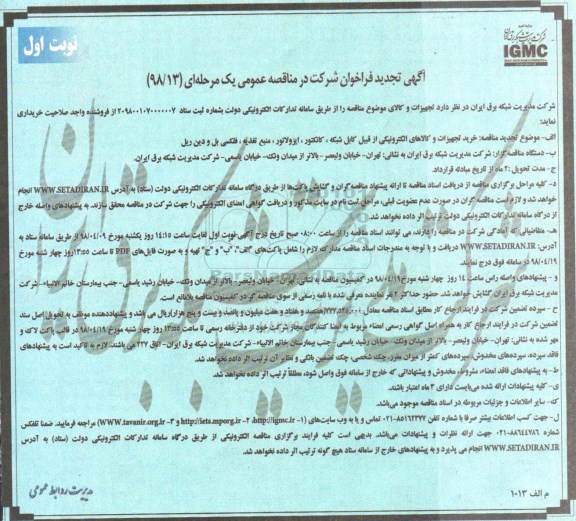 نوبت اول
شرکت مدیریت شبکه برق ایران
IGMC
آگهی تجدید فراخوان شرکت در مناقصه عمومی یک مرحله‌ای (۹۸/۱۳)
شرکت مدیریت شبکه برق ایران در نظر دارد تجهیزات و کالای موضوع مناقصه را از طریق سامانه تدارکات الکترونیکی دولت بشماره ثبت ستاد ۲۰۹۸۰۰۱۰۷۰۰۰۰۰۷ از فروشنده واجد صلاحیت خریداری
نماید:
الف- موضوع تجدید مناقصه: خرید تجهیزات و کالاهای الکترونیکی از قبیل کابل شبکه ، کانکتور ، ایزولاتور ، منبع تغذیه ، فلکسی پل و دین ریل
ب- دستگاه مناقصه‌گزار: شرکت مدیریت شبکه برق ایران به نشانی: تهران- خیابان ولیعصر- بالاتر از میدان ونک- خیابان یاسمی- شرکت مدیریت شبکه برق ایران.
ج- مدت تحویل: ۲ ماه از تاریخ مبادله قرارداد.
د- کلیه مراحل برگزاری مناقصه از دریافت اسناد مناقصه تا ارائه پیشنهاد مناقصه‌گران و گشایش پاکت‌ها از طریق درگاه سامانه تدارکات الکترونیکی دولت (ستاد) به آدرس WWW.SETADIRAN.IR انجام
خواهد شد و لازم است مناقصه گران در صورت عدم عضویت قبلی، مراحل ثبت نام در سایت مذکور و دریافت گواهی امضای الکترونیکی را جهت شرکت در مناقصه محقق سازند. به پیشنهادهای واصله خارج
از درگاه سامانه تدارکات الکترونیکی دولت ترتیب اثر داده نخواهد شد.
ه- متقاضیانی که آمادگی شرکت در مناقصه را دارند، می توانند اسناد مناقصه را از ساعت ۰۸:۰۰ صبح تاریخ درج آگهی نوبت اول لغایت ساعت ۱۴:۱۵ روز یکشنبه مورخ ۹۸/۰۴/۰۹ از طریق سامانه ستاد به
آدرس: WWW.SETADIRAN.IR دریافت و با توجه به مندرجات اسناد مناقصه مدارک لازم را شامل پاکت‌های "الف"، "ب" و "ج" تهیه و به صورت فایل‌های PDF تا ساعت ۱۳:۵۵ روز چهار شنبه مورخ
۹۸/۰۴/۱۹ در سامانه فوق درج نمایند.
و - پیشنهادهای واصله راس ساعت ۱۴ روز چهار شنبه مورخ ۹۸/۰۴/۱۹ در کمیسیون مناقصه به نشانی: تهران- خیابان ولیعصر- بالاتر از میدان ونک- خیابان رشید یاسمی- جنب بیمارستان خاتم الانبیاء- شرکت
مدیریت شبکه برق ایران گشایش خواهد شد. حضور حداکثر ۲ نفر نماینده معرفی شده با نامه رسمی از سوی مناقصه گر در کمیسیون مناقصه بلامانع است.
ح - سپرده تضمین شرکت در فرایند ارجاع کار مطابق اسناد مناقصه معادل
تضمین شرکت در فرایند ارجاع کار به همراه اصل گواهی رسمی امضاء مربوط به امضا کنندگان مجاز شرکت خود از دفترخانه رسمی تا ساعت ۱۳:۵۵ روز چهار شنبه مورخ ۹۸/۰۴/۱۹ در قالب پاکت لاک و
مهر شده به نشانی: تهران- خیابان ولیعصر- بالاتر از میدان ونک- خیابان رشید یاسمی - جنب بیمارستان خاتم الانبیاء - شرکت مدیریت شبکه برق ایران- اتاق ۲۲۷ می باشند؛ لازم به تاکید است به پیشنهادهای
فاقد سپرده، سپرده‌های مخدوش، سپرده‌های کمتر از میزان مقرر، چک شخصی، چک تضمین بانکی و نظایر آن ترتیب اثر داده نخواهد شد.
ط- به پیشنهادهای فاقد امضاء، مشروط، مخدوش و پیشنهاداتی که خارج از سامانه فوق واصل شود، مطلقاً ترتیب اثر داده نخواهد شد.
ی- کلیه پیشنهادات ارائه شده می‌بایست دارای ۳ ماه اعتبار باشند.
ک- سایر اطلاعات و جزئیات مربوطه در اسناد مناقصه موجود می‌باشد.
ل- جهت کسب اطلاعات بیشتر صرفا با شماره تلفن ۸۵۱۶۲۳۷۷-۰۲۱ تماس و یا به وب سایت‌های (۱- http://igmc.ir، ۲- http://iets.mporg.ir و ۳- www.tavanir.org.ir) مراجعه فرمایید. ضمنا تلفکس
شماره ۸۸۶۴۴۷۸۶-۰۲۱ جهت ارائه نظرات و پیشنهادات می‌باشد. بدیهی است کلیه فرایند برگزاری مناقصه الکترونیکی از طریق درگاه سامانه تدارکات الکترونیکی دولت (ستاد) به آدرس
WWW.SETADIRAN.IR انجام می پذیرد و به پیشنهادهای خارج از سامانه ستاد هیچ گونه ترتیب اثر داده نخواهد شد.
م الف ۱۰۱۳
مدیریت روابط عمومی
ParsNamadData